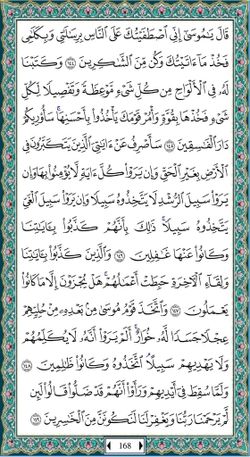 قَالَ يَٰمُوسَىٰٓ إِنِّي ٱصۡطَفَيۡتُكَ عَلَى ٱلنَّاسِ بِرِسَٰلَٰتِي وَبِكَلَٰمِي
فَخُذۡ مَآ ءَاتَيۡتُكَ وَكُن مِّنَ ٱلشَّٰكِرِينَ ١٤٤ وَكَتَبۡنَا
لَهُۥ فِي ٱلۡأَلۡوَاحِ مِن كُلِّ شَيۡءٖ مَّوۡعِظَةٗ وَتَفۡصِيلٗا لِّكُلِّ
شَيۡءٖ فَخُذۡهَا بِقُوَّةٖ وَأۡمُرۡ قَوۡمَكَ يَأۡخُذُواْ بِأَحۡسَنِهَاۚ سَأُوْرِيكُمۡ
دَارَ ٱلۡفَٰسِقِينَ ١٤٥ سَأَصۡرِفُ عَنۡ ءَايَٰتِيَ ٱلَّذِينَ يَتَكَبَّرُونَ فِي
ٱلۡأَرۡضِ بِغَيۡرِ ٱلۡحَقِّ وَإِن يَرَوۡاْ كُلَّ ءَايَةٖ لَّا يُؤۡمِنُواْ بِهَا وَإِن
يَرَوۡاْ سَبِيلَ ٱلرُّشۡدِ لَا يَتَّخِذُوهُ سَبِيلٗا وَإِن يَرَوۡاْ سَبِيلَ ٱلۡغَيِّ
يَتَّخِذُوهُ سَبِيلٗاۚ ذَٰلِكَ بِأَنَّهُمۡ كَذَّبُواْ بِـَٔايَٰتِنَا
وَكَانُواْ عَنۡهَا غَٰفِلِينَ ١٤٦ وَٱلَّذِينَ كَذَّبُواْ بِـَٔايَٰتِنَا
وَلِقَآءِ ٱلۡأٓخِرَةِ حَبِطَتۡ أَعۡمَٰلُهُمۡۚ هَلۡ يُجۡزَوۡنَ إِلَّا مَا كَانُواْ
يَعۡمَلُونَ ١٤٧ وَٱتَّخَذَ قَوۡمُ مُوسَىٰ مِنۢ بَعۡدِهِۦ مِنۡ حُلِيِّهِمۡ
عِجۡلٗا جَسَدٗا لَّهُۥ خُوَارٌۚ أَلَمۡ يَرَوۡاْ أَنَّهُۥ لَا يُكَلِّمُهُمۡ
وَلَا يَهۡدِيهِمۡ سَبِيلًاۘ ٱتَّخَذُوهُ وَكَانُواْ ظَٰلِمِينَ ١٤٨
وَلَمَّا سُقِطَ فِيٓ أَيۡدِيهِمۡ وَرَأَوۡاْ أَنَّهُمۡ قَدۡ ضَلُّواْ قَالُواْ لَئِن
لَّمۡ يَرۡحَمۡنَا رَبُّنَا وَيَغۡفِرۡ لَنَا لَنَكُونَنَّ مِنَ ٱلۡخَٰسِرِينَ ١٤٩
168